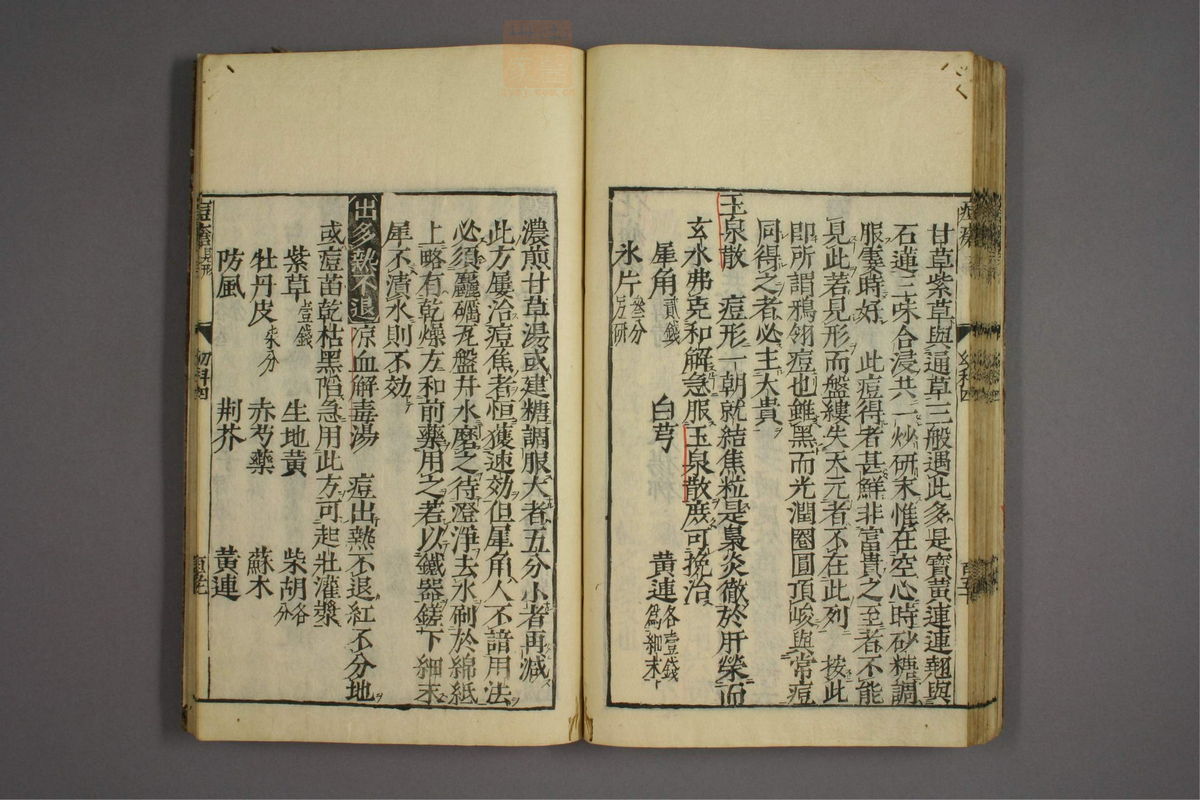 甘草紫草與通草三般遇此多是寶黃連連翹與
石蓮三味合浸共一炒研末惟在空心時砂糖調
服橐時好　此痘得者甚鮮非富貴之至者不能
見此若見形而盤縷失天元者不在此列　按此
即所謂鴉翎痘也雖黑而光潤圈圓頂峻與常痘
同得之者必主大貴
玉泉散　痘形一朝就結焦粒是梟炎徹於肝榮而
玄水弗克和解急服玉泉散庶可挽治
犀角貳錢　白芎　黃連各壹錢爲細末
氷片叁分另研
濃煎甘草湯或建糖調服大者五分小者再減
此方屢治痘焦者恒獲速効但犀角人不諳用法
必須麤礪瓦盤井水磨之待澄淨去水刷於綿紙
上略有乾燥方和前藥用之若以鐵器鎈下細末
犀不漬水則不効
出多熱不退　凉血解毒湯　痘出熱不退紅不分地
或痘苗乾枯黑陷急用此方可起壯灌漿
紫草壹錢　生地黃　柴胡各分
牡丹皮柒分　赤芍藥　蘇木
防風　荆芥　黃連
痘疹　幼科四